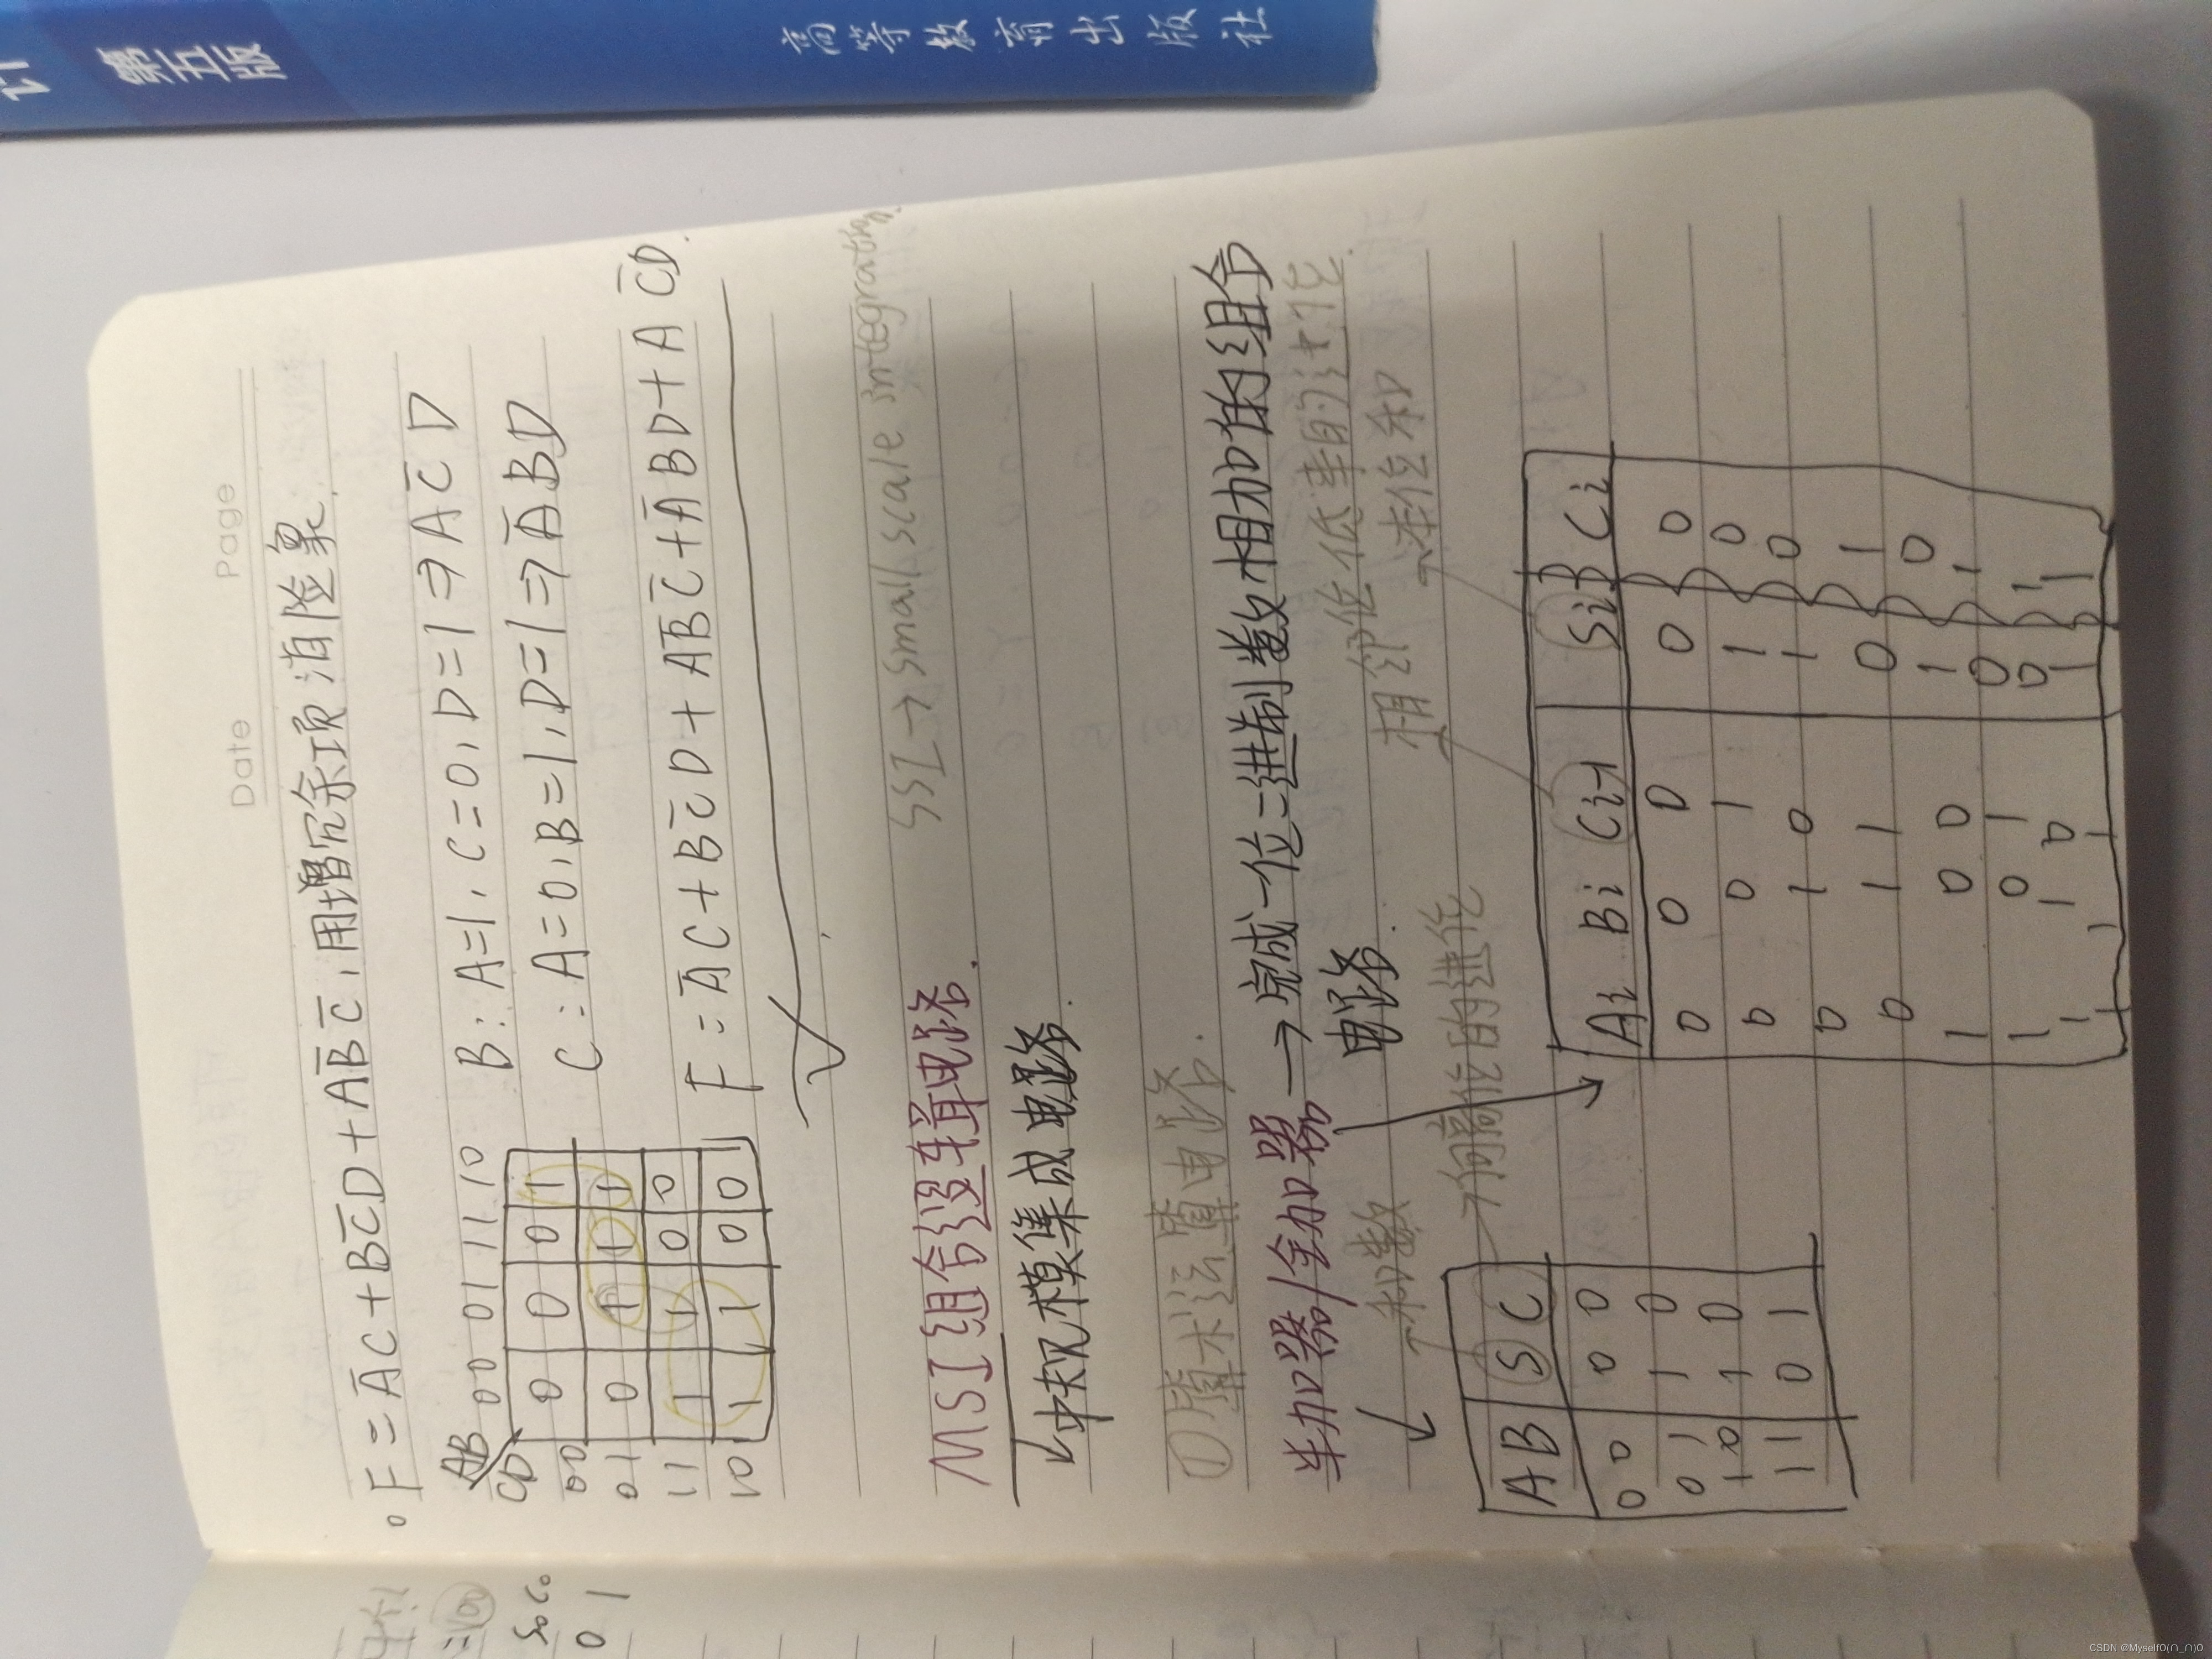 第五版
高等教育出版社
Date Page
F=A̅C+BC̅D+AB̅C̅,用增冗余项消险象.
AB 00 01 11 10
CD
00 0 0 0 1
01 0 1 1 1
11 1 1 0 0
10 1 1 0 0
B:A=1,C=0,D=1⇒AC̅D
C:A=0,B=1,D=1⇒A̅BD
F=A̅C+BC̅D+AB̅C̅+A̅BD+AC̅D.
MSI组合逻辑电路.
SSI→small scale integrating.
中规模集成电路.
半加器/全加器→完成一位二进制数相加的组合
电路.
和数
向高位的进位
相邻低位来的进位
本位和
A B S C
0 0 0 0
0 1 1 0
1 0 1 0
1 1 0 1
Ai Bi Ci-1 Si Ci
0 0 0 0 0
0 0 1 1 0
0 1 0 1 0
0 1 1 0 1
1 0 0 1 0
1 0 1 0 1
1 1 0 0 1
1 1 1 1 1
S0 C0
0 1
CSDN @MyselfO(∩_∩)O